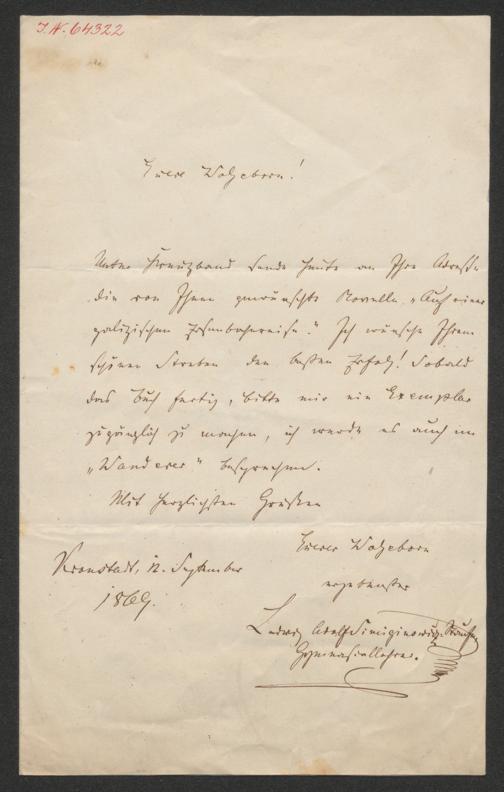 I. N. 64322
Euere Wolgeborn!
Unter Kreuzband sende heute an Ihre Adresse
die von Ihnen gewünschte Novelle „Auf einer
galizischen Eisenbahnreise." Ich wünsche Ihrem
schönen Streben den besten Erfolg! Sobald
das Buch fertig, bitte mir ein Exemplar
zugänglich zu machen, ich werde es auch im
„Wanderer" besprechen.
Mit herzlichsten Grüßen
Euerer Wolgeborn
ergebenster
Kronstadt, 12. September
1869.
Ludwig Adolf Simiginowicz-Staufe,
Gymnasiallehrer.